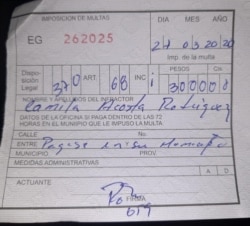 IMPOSICION DE MULTAS DIA MES AÑO
EG 262025 27 03 2020
Imp. de la multa
Disposición Legal 370 ART. 68 INC i PESOS 3000 00
NOMBRE Y APELLIDOS DEL INFRACTOR
Camila Acosta Rodríguez
DATOS DE LA OFICINA SI PAGA DENTRO DE LAS 72
HORAS EN EL MUNICIPIO QUE LE IMPUSO LA MULTA.
CALLE No.
ENTRE Pagase en su Municipio
MUNICIPIO PROV.
MEDIDAS ADMINISTRATIVAS
A D
ACTUANTE
FIRMA
619